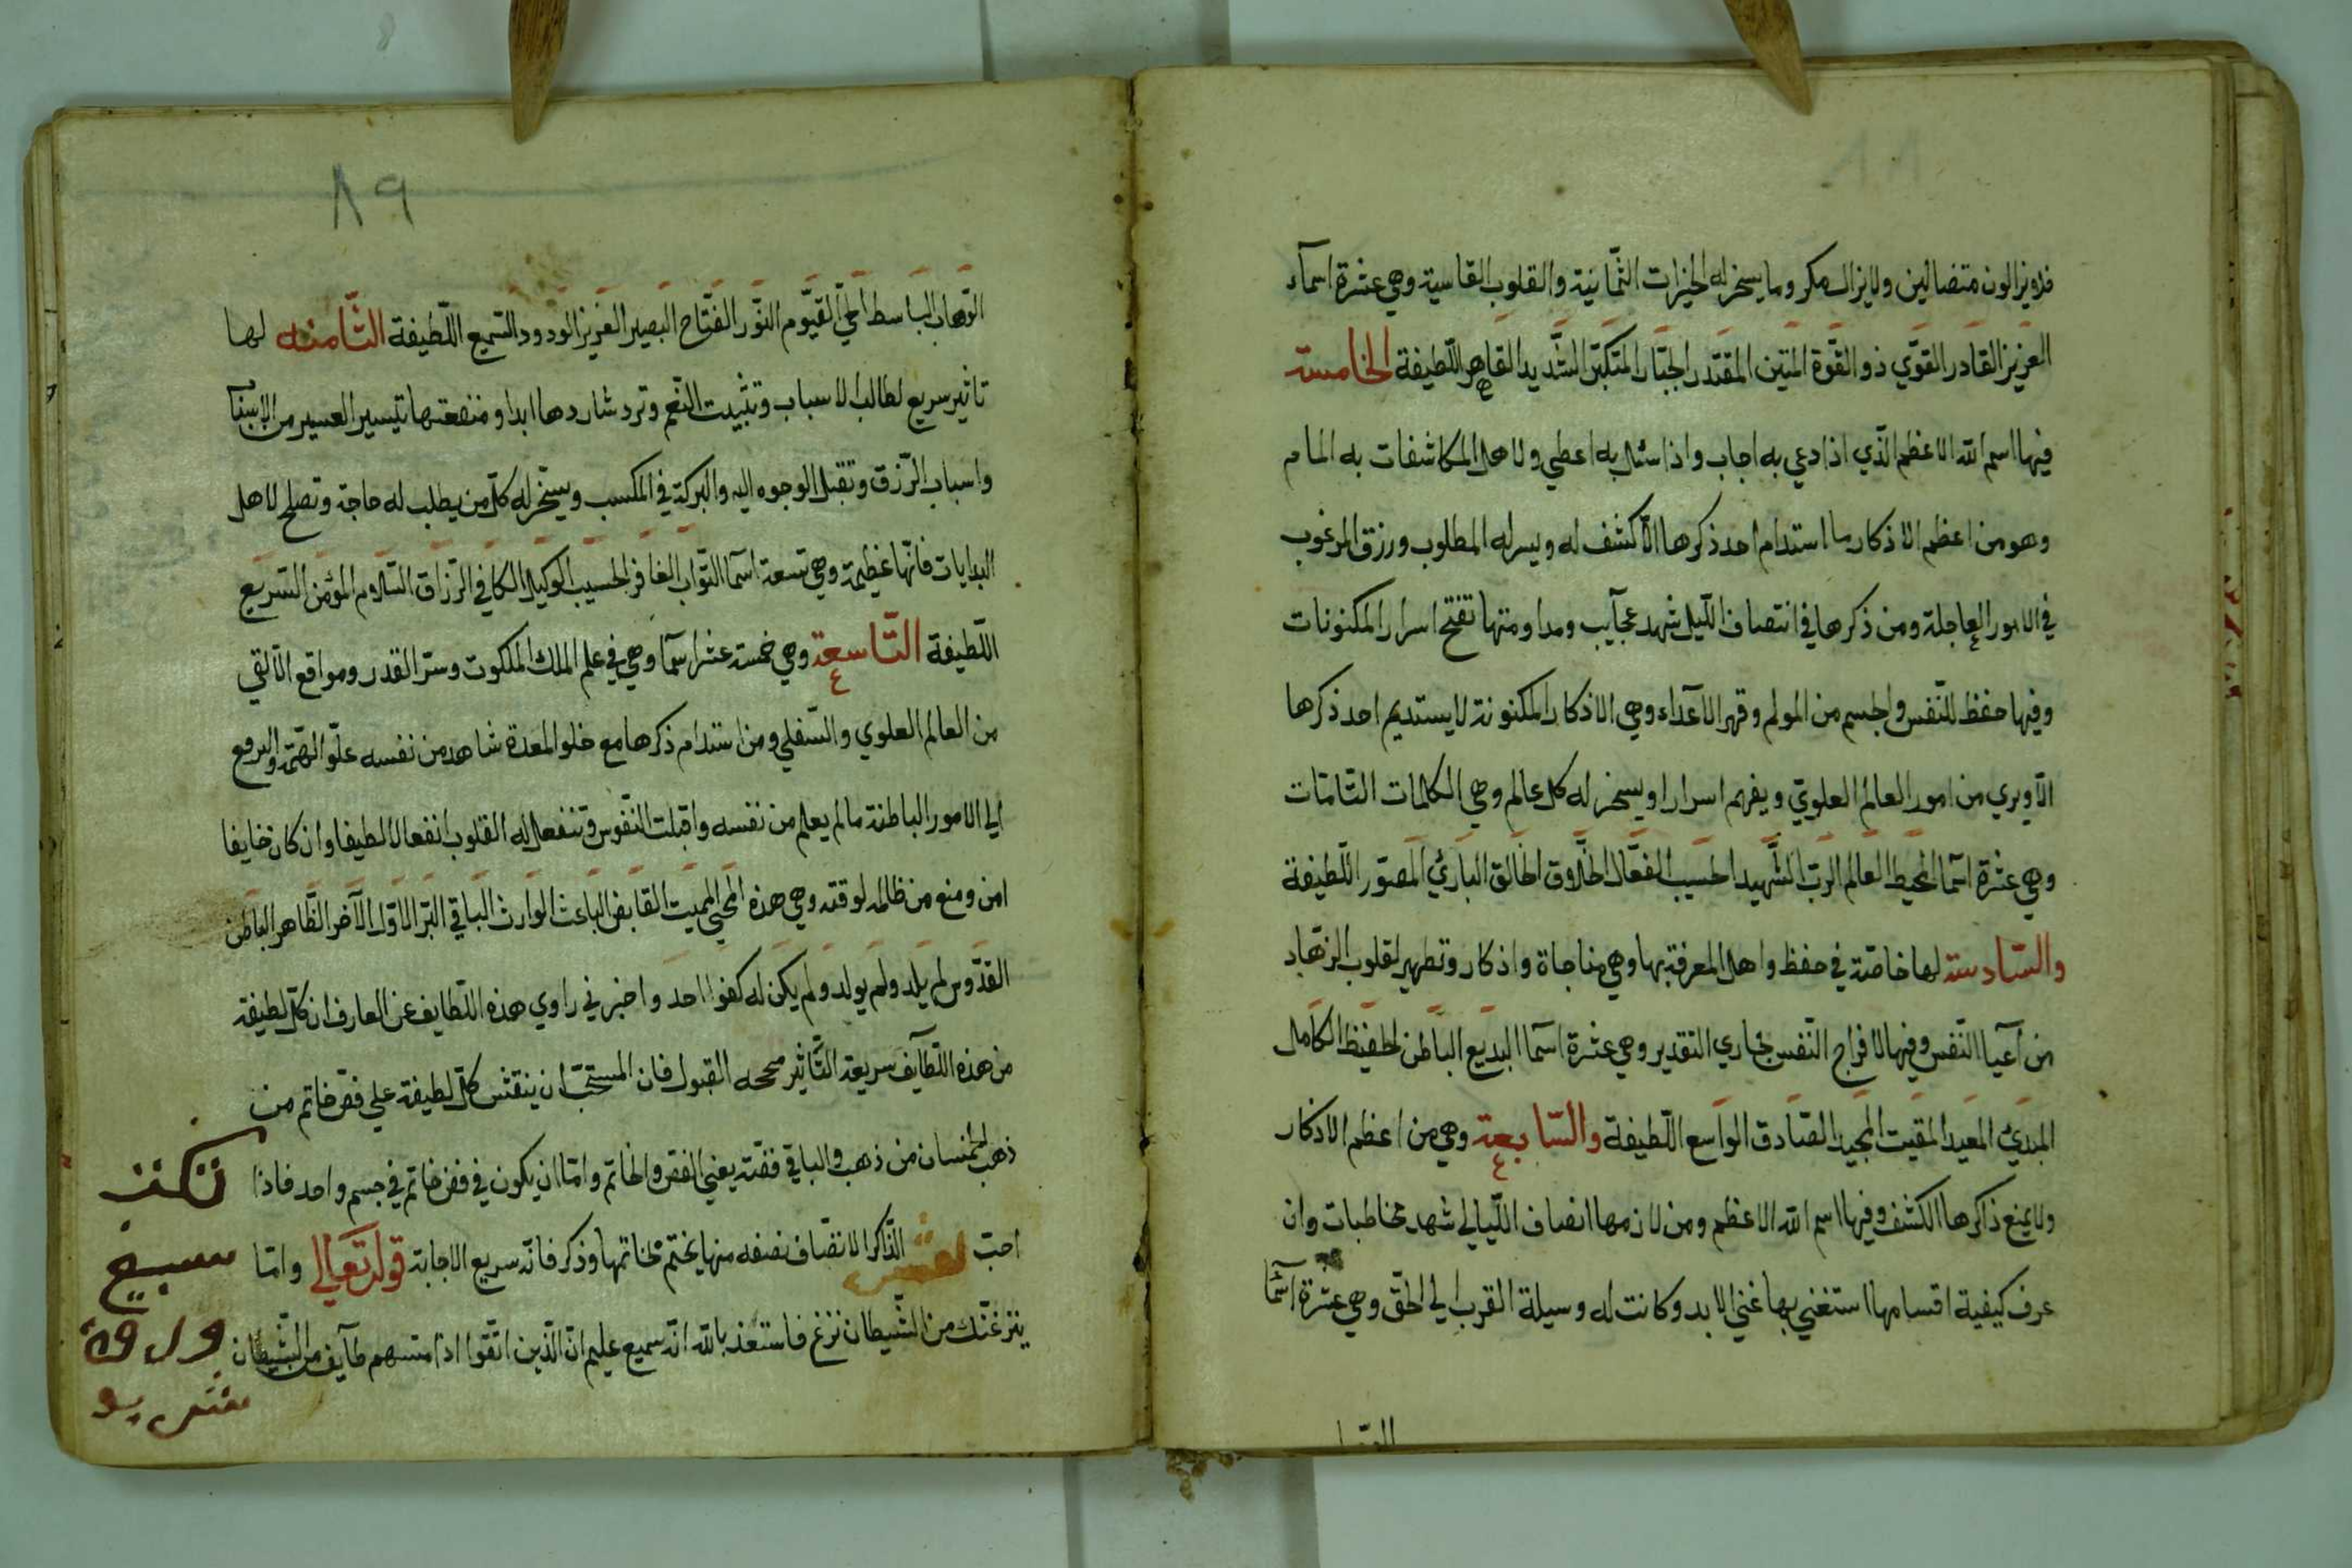 فلا يزالون متضالين ولا يزال مكر وما يسخر له الخيرات الثمانية والقلوب القاسية وهي عشرة اسمآء
العزيز القادر القوّي ذو القوّة المتين المقتدر الجبّار المتكبّر الشّديد القاهر اللّطيفة الخامسة
فيها اسم الله الاعظم الّذي اذا دعي به اجاب واذا سئل به اعطي ولاهل المكاشفات به المام
وهو من اعظم الاذكار ما استدام احد ذكرها الّا كشف له ويسر له المطلوب ورزق المرغوب
في الامور العاجلة ومن ذكرها في انتصاف اللّيل شهد عجآيب ومداومتها تفتح اسرار المكنونات
وفيها حفظ للنّفس والجسم من المولم وقهر الاعدآء وهي الاذكار المكنونة لا يستديم احد ذكرها
الّا ويري من امور العالم العلويّ ويفهم اسرارا ويسخر له كل عالم وهي الكلمات التّامّات
وهي عشرة اسمآ المحيط العالم الربّ الشّهيد الحسيب الفعّال الخلّاق الخالق الباري المصوّر اللّطيفة
والسّادسة لها خاصّة في حفظ واهل المعرفة بها وهي مناجاة واذكار وتطهير لقلوب الزهّاد
من اعيا النّفس وفيها الافراج النّفس مجاري التقدير وهي عشرة اسمآ البديع الباطن الحفيظ الكامل
المبدي المعيد المقيت المجيد الصّادق الواسع اللّطيفة والسّابعة وهي من اعظم الاذكار
ولا يمنع ذاكرها الكشف وفيها اسم الله الاعظم ومن لازمها انصاف اللّيالي شهد مخاطبات وان
عرف كيفية اقسامها استغني بها غني الابد وكانت له وسيلة القرب الي الحقّ وهي عشرة اسمآ
٨٩
الوّهاب الباسط الحيّ القيّوم النوّر الفتّاح البصير العزيز الودود السّميع اللّطيفة الثّامنه لها
تاثير سريع لطالب الاسباب وتثبيت النّعم وترد شاردها ابدا ومنفعتها تيسير العسير من الاسباب
واسباب الرّزق وتقبل الوجوه اليه والبركة في المكسب ويسخّر له كلّ من يطلب له حاجة وتصلح لاهل
البدايات فانّها عظيمة وهي تسعة اسمآ التوّاب الغافر الحسيب الوكيل الكافي الرّزاق السّلام المؤمن السّريع
اللّطيفة التّاسعة وهي خمسة عشر اسمآ وهي في علم الملك الملكوت وسرّ القدر ومواقع الآلقي
من العالم العلوي والسّفلي ومن استدام ذكرها مع خلو المعدة شاهد من نفسه علوّ الهمّة والرفع
الي الامور الباطنة ما لم يعلم من نفسه واقبلت النّفوس وتنفعل له القلوب انفعالا لطيفا وان كان خايفا
امن ومنع من ظالمه لوقته وهي هذه المحيي المميت القابض الباعث الوارث الباقي البرّ الاوّل الآخر الظّاهر الباطن
القدّوس لم يلد ولم يولد ولم يكن له كفوا احد واخبرني راوي هذه اللّطايف عن العارف ان كلّ لطيفة
من هذه اللّطآيف سريعة التّأثير القبول فان المستحبّ ان ينقش كلّ لطيفة علي فصّ خاتم من
ذهب الخمسان من ذهب والباقي فضّة يعني الفص والخاتم وامّا ان يكون في فص خاتم في جسم واحد فاذا
احبّ الذّاكر الانصّاف نصفه منها يختم بخاتمها وذكر فانّه سريع الاجابة قوله تعالي وامّا
ينزغنّك من الشّيطان نزغ فاستعذ بالله انّه سميع عليم انّ الّذين اتّقوا اذا مسّهم طآيف من الشّيطان